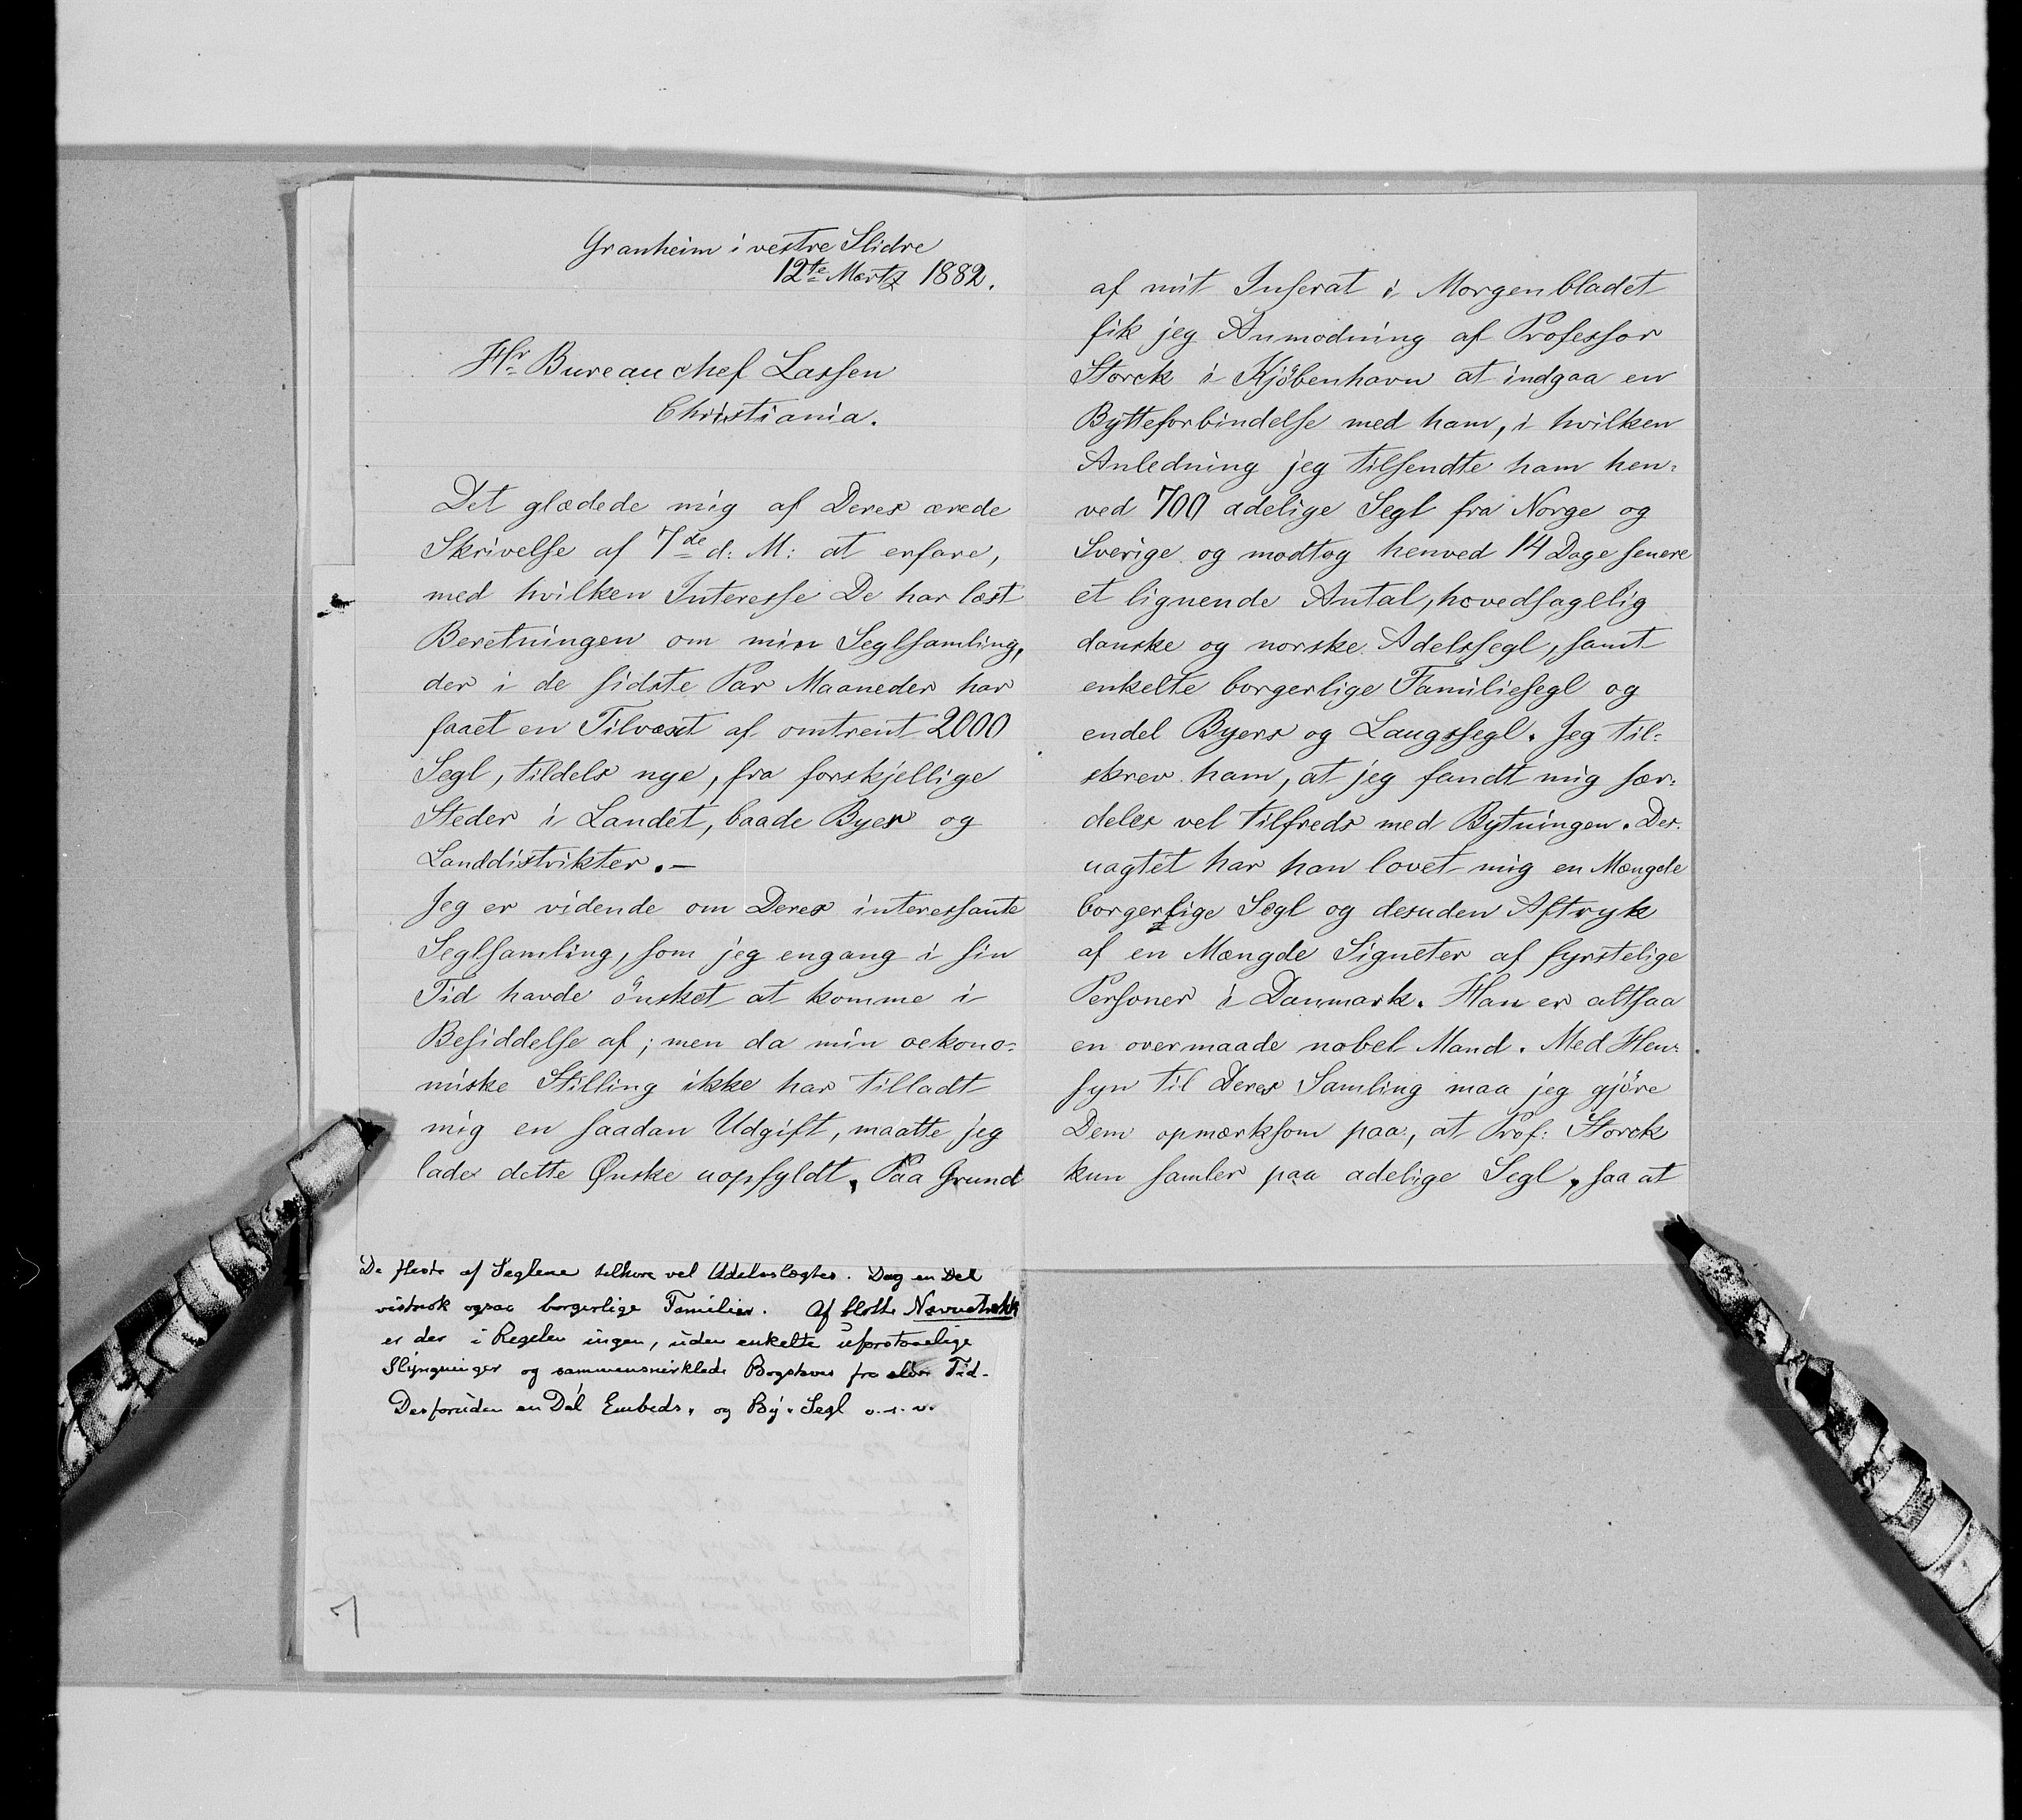 Granheim i vestre Slidre
12te Martz 1882.
Hr Bureauchef Lassen
Christiania.
Det glædede mig af Deres ærede
Skrivelse af 7de d: M: at erfare,
med hvilken Interesse De har læst
Beretningen om min Seglsamling,
der i de sidste Par Maaneder har
faaet en Tilvæxt af omtrent 2000
Segl, tildels nye, fra forskjellige
Steder i Landet, baade Byer og
Landdistrikter.-
Jeg er vidende om Deres interessante
Seglsamling, som jeg engang i sin
Tid havde önsket at komme i
Besiddelse af; men da min oekono-
miske Stilling ikke har tilladt
mig en saadan Udgift, maatte jeg
lade dette Ønske uopfyldt. Paa Grund
De fleste af Seglene tilhøre vel Adelsslægter. Dog en Del
vistnok ogsaa borgerlige Familier. Af blotte Navnetrækk
er der i Regelen ingen, uden enkelte uforstaaelige
Slyngninger og sammensnirklede Bogstaver fra ældre Tid.
Desforuden en Del Embeds- og By-Segl o.s.v.
7
af mit Inserat i Morgenbladet
fik jeg Anmodning af Professor
Storck i Kjöbenhavn at indgaa en
Bytteforbindelse med ham, i hvilken
Anledning jeg tilsendte ham hen-
ved 700 adelige Segl fra Norge og
Sverige og modtog henved 14 Dage senere
et lignende Antal, hovedsagelig
danske og norske Adelssegl, samt
enkelte borgerlige Familiesegl og
endel Byers og Laugssegl. Jeg til-
skrev ham, at jeg fandt mig sær-
deles vel tilfreds med Bytningen. Des-
uagtet har han lovet mig en Mængde
borgerlige Segl og desuden Aftryk
af en Mængde Signeter af fyrstelige
Personer i Danmark. Han er altsaa
en overmaade nobel Mand. Med Hen-
syn til Deres Samling maa jeg gjöre
Dem opmærksom paa, at Prof: Storck
kun samler paa adelige Segl, saa at